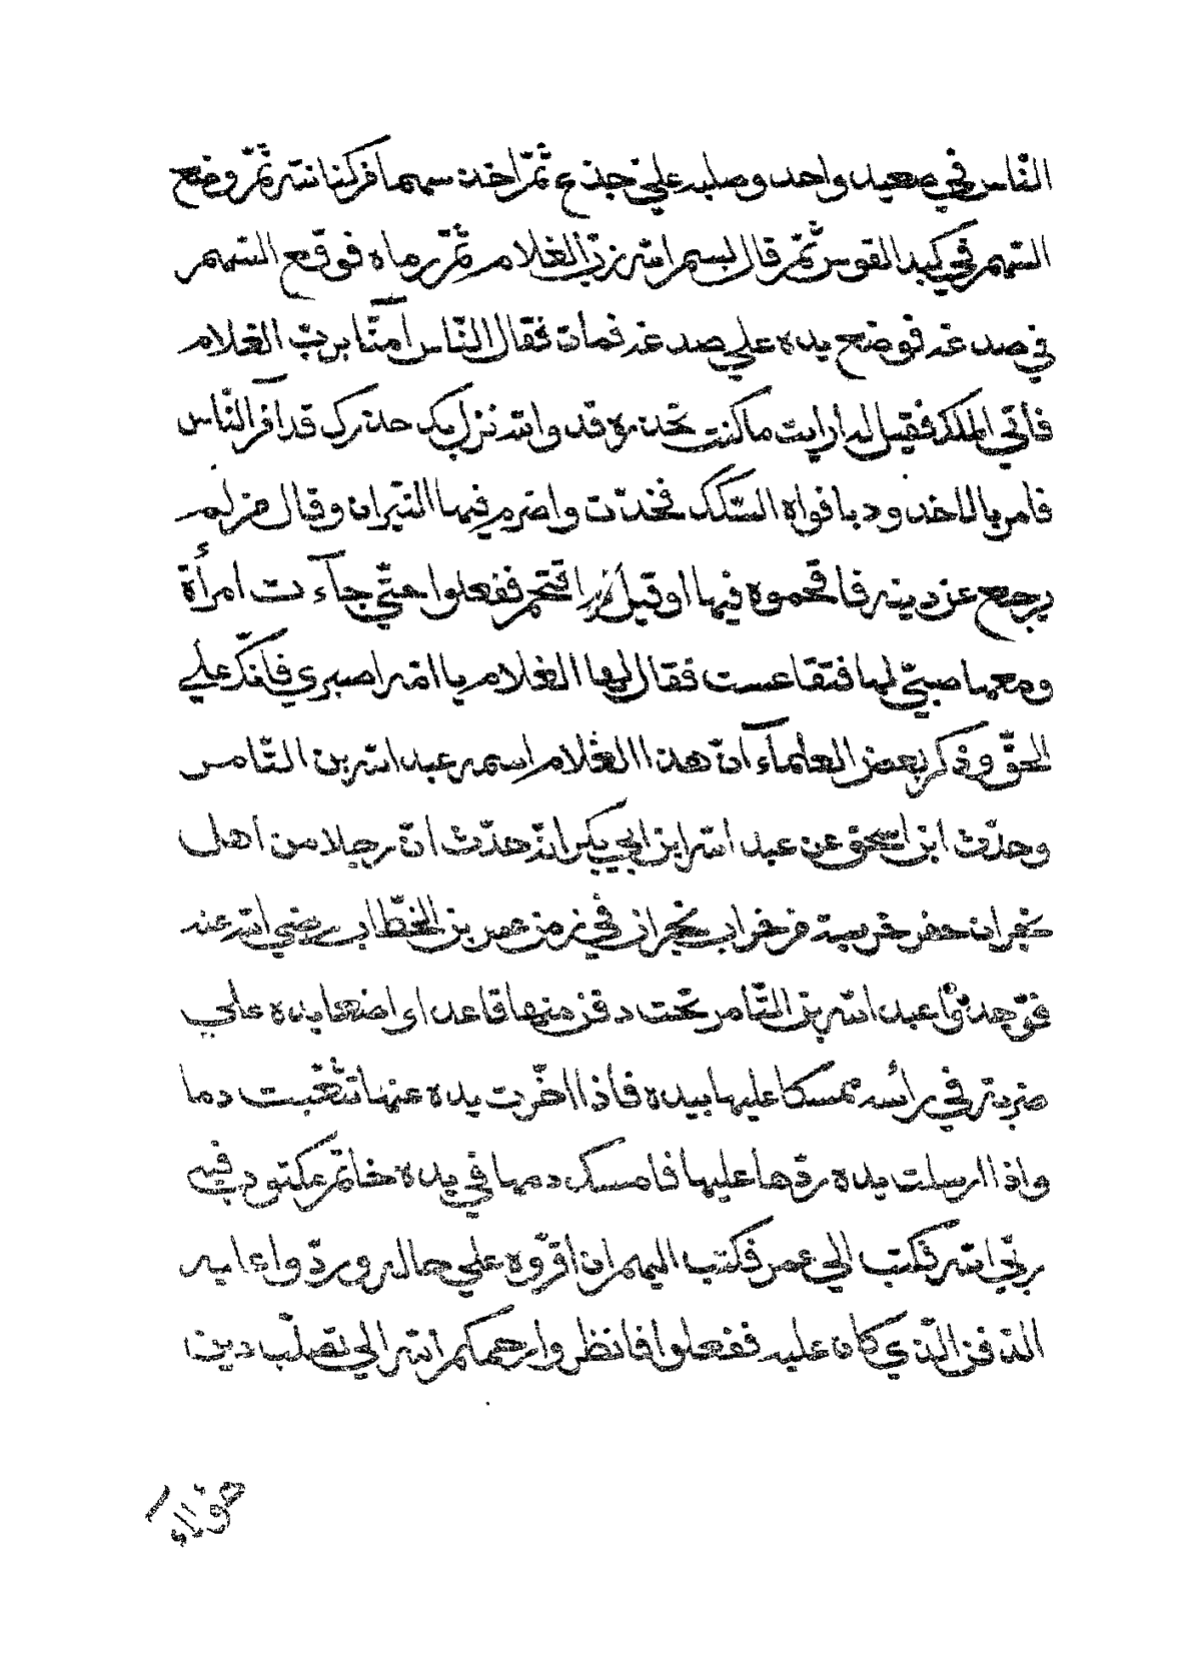 الناس في صعيد واحد وصلبه علي جذع ثمّ اخذ سهما من كنانته ثمّ وضع
السّهم في كبد القوس ثمّ قال بسم الله ربّ الغلام ثمّ رماه فوقع السّهم
في صدغه فوضع يده علي صدغه فمات فقال النّاس آمنّا بربّ الغلام
فأتي الملك فقيل له ارايت ما كنت تحذره قد والله نزل بك حذرك قد آمن النّاس
فامر بالاخدود بافواه السّكك فخدّت واضرم فيها النّيران وقال من لم
يرجع عن دينه فاقحموه فيها او قيل له اقتحم ففعلوا حتّي جآءت امرأة
ومعها صبيّ لها فتقاعست فقال لها الغلام يا امّه اصبري فانّك علي
الحقّ وذكر بعض العلمآء انّ هذا الغلام اسمه عبد الله بن الثّامر
وحدّث ابن اسحق عن عبد الله ابن ابي بكر انّه حدّث انّ رجلا من اهل
نجران حفر خربة من خراب نجران في زمن عمر بن الخطّاب رضي الله عنه
فوجدوا عبد الله بن الثّامر تحت دفن منها قاعدا واضعا يده علي
ضربة في رأسه ممسكا عليها بيده فأذا اخّرت يده عنها تثعّبت دما
واذا ارسلت يده ردّها عليها فامسك دمها في يده خاتم مكتوب فيه
ربّي الله فكتب الي عمر فكتب اليهم ان أقرّوه علي حاله وردّوا عليه
الدّفن الّذي كان عليه ففعلوا فانظروا رحمكم الله الي تصلّب دين